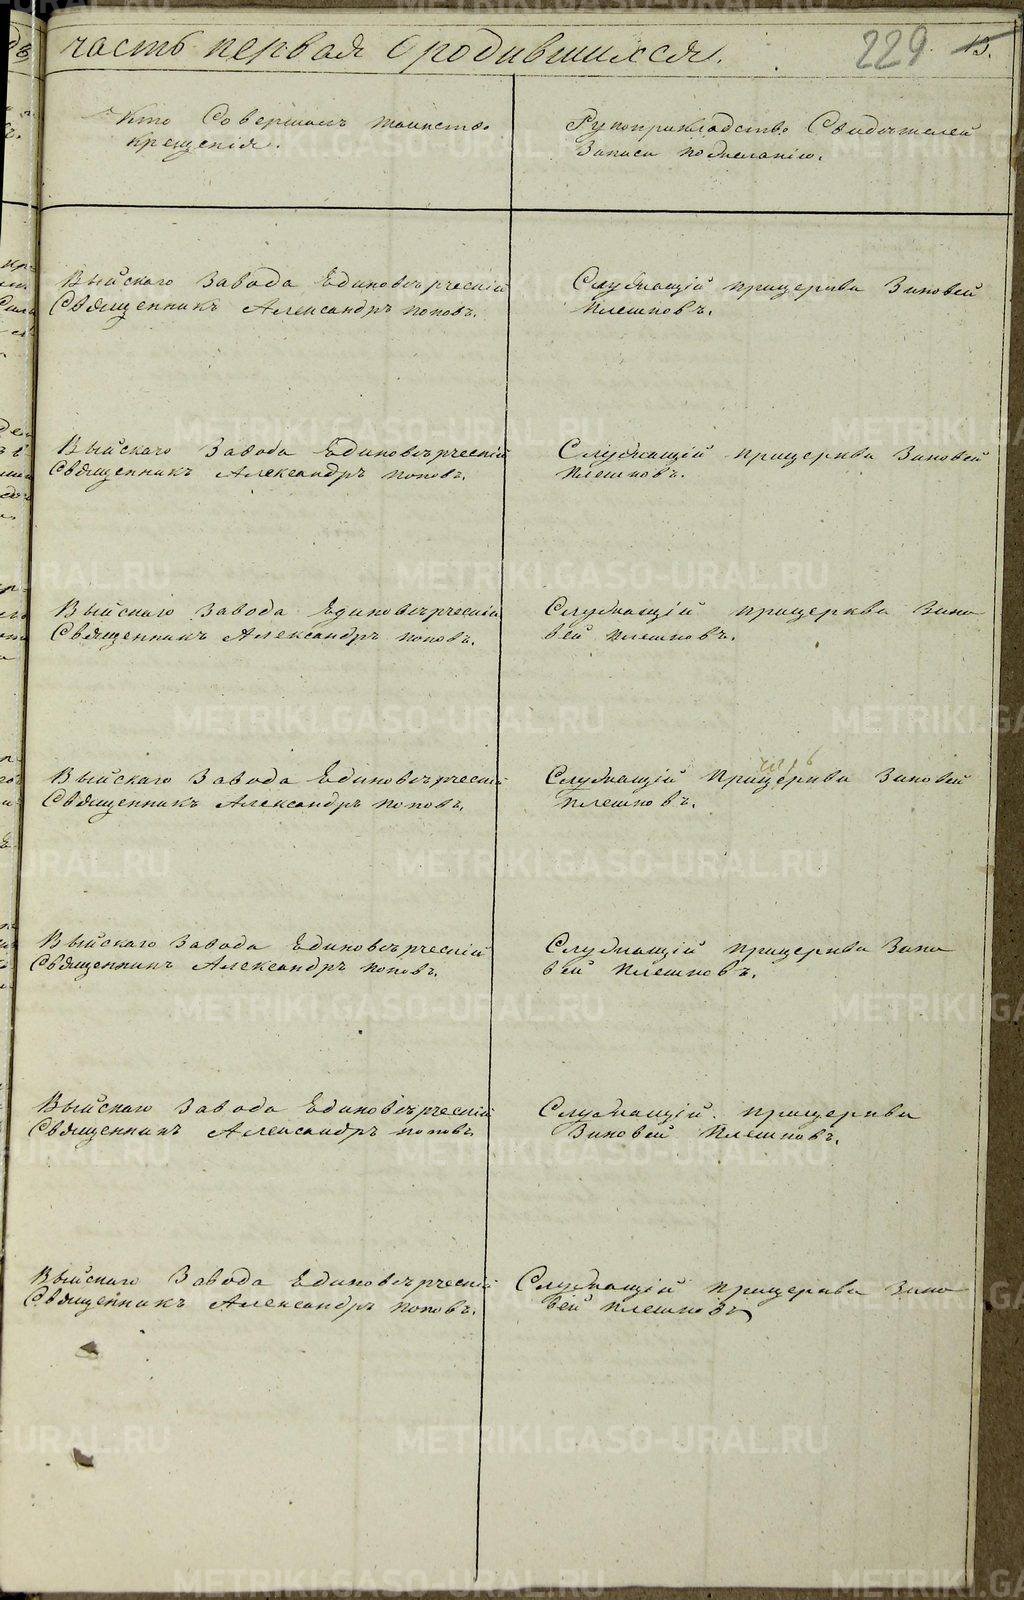 часть первая о родившихся.
229
13.
Кто Совершалъ таинство
крещенія.
Рукоприкладство Свидѣтелей
Записи по желанію.
Выйскаго Завода Единовѣрческій
Священникъ Александръ Поповъ.
Служащій прицеркви Зиновей
Плешковъ.
Выйскаго Завода Единовѣрческій
Священникъ Александръ Поповъ.
Служащій прицеркви Зиновей
Плешковъ.
Выйскаго Завода Единовѣрческій
Священникъ Александръ Поповъ.
Служащій прицеркви Зино
вей Плешковъ.
Выйскаго Завода Единовѣрческій
Священникъ Александръ Поповъ.
Служащій прицеркви Зиновей
Плешковъ.
Выйскаго Завода Единовѣрческій
Священникъ Александръ Поповъ.
Служащій прицеркви Зино
вей Плешковъ.
Выйскаго Завода Единовѣрческій
Священникъ Александръ Поповъ
Служащій прицеркви
Зиновей Плешковъ.
Выйскаго Завода Единовѣрческій
Священникъ Александръ Поповъ.
Служащій прицеркви Зино
вей Плешковъ
METRIKI.GASO-URAL.RU